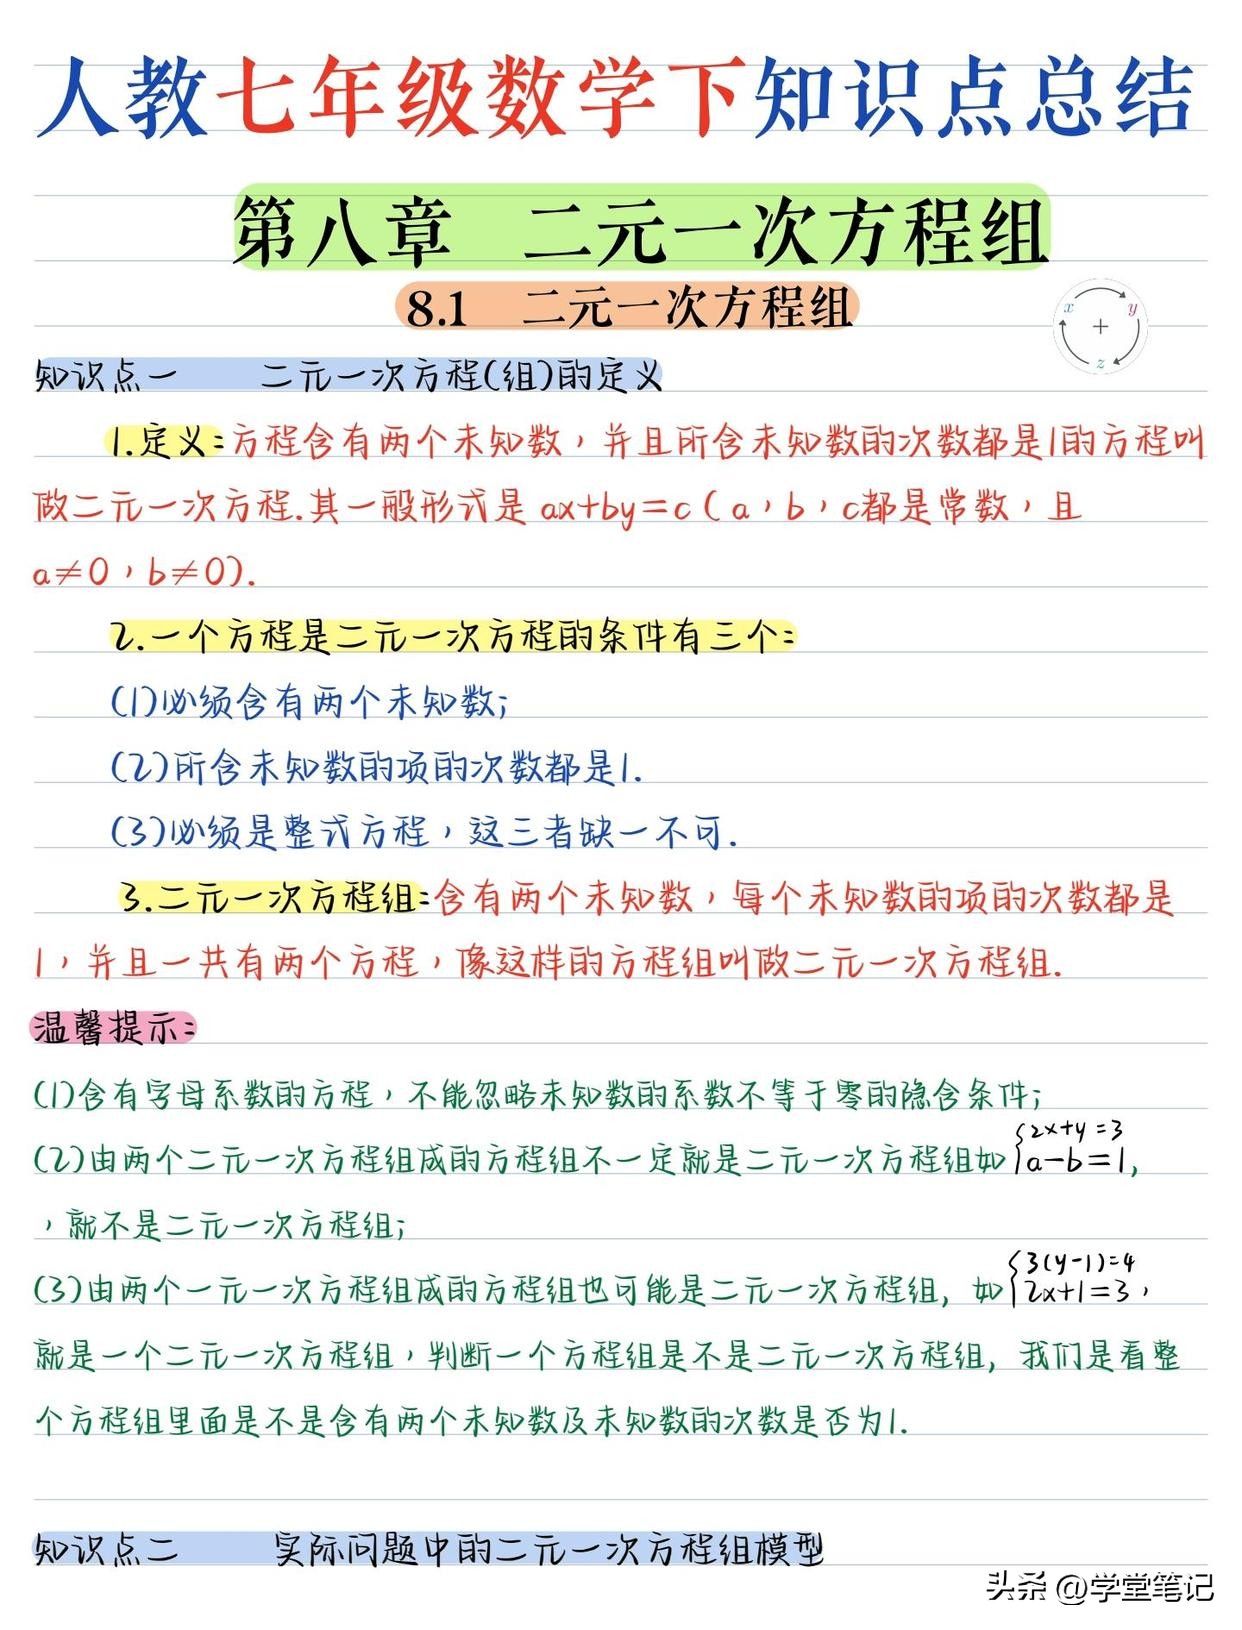 人教七年级数学下知识点总结
第八章 二元一次方程组
8.1 二元一次方程组
x y
+
z
知识点一 二元一次方程(组)的定义
1.定义:方程含有两个未知数，并且所含未知数的次数都是1的方程叫
做二元一次方程.其一般形式是 ax+by=c(a，b，c都是常数，且
a≠0，b≠0).
2.一个方程是二元一次方程的条件有三个:
(1)必须含有两个未知数;
(2)所含未知数的项的次数都是1.
(3)必须是整式方程，这三者缺一不可.
3.二元一次方程组:含有两个未知数，每个未知数的项的次数都是
1，并且一共有两个方程，像这样的方程组叫做二元一次方程组.
温馨提示:
(1)含有字母系数的方程，不能忽略未知数的系数不等于零的隐含条件;
{2x+y=3
(2)由两个二元一次方程组成的方程组不一定就是二元一次方程组如 a-b=1,
，就不是二元一次方程组;
{3(y-1)=4
(3)由两个一元一次方程组成的方程组也可能是二元一次方程组, 如 2x+1=3，
就是一个二元一次方程组，判断一个方程组是不是二元一次方程组, 我们是看整
个方程组里面是不是含有两个未知数及未知数的次数是否为1.
知识点二 实际问题中的二元一次方程组模型
头条 @学堂笔记